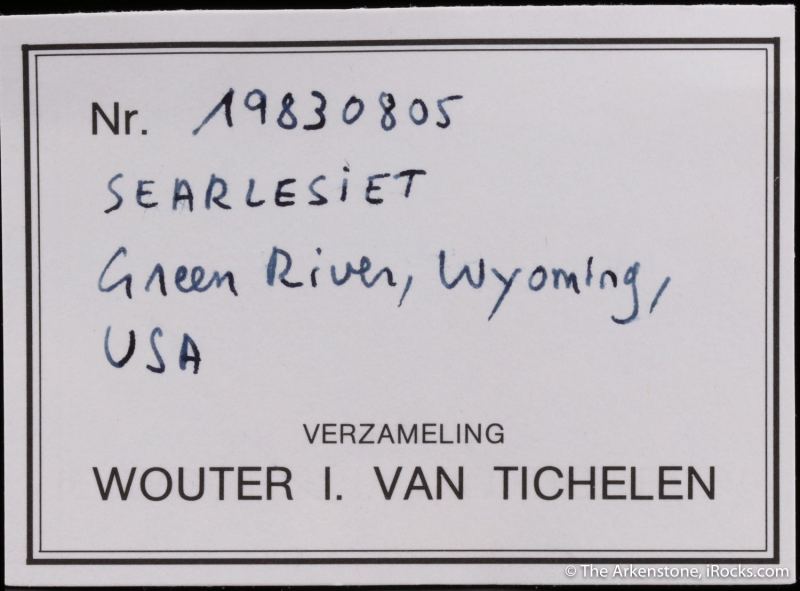 Nr. 19830805
SEARLESiET
Green River, Wyoming,
USA
VERZAMELING
WOUTER I. VAN TICHELEN
© The Arkenstone, iRocks.com